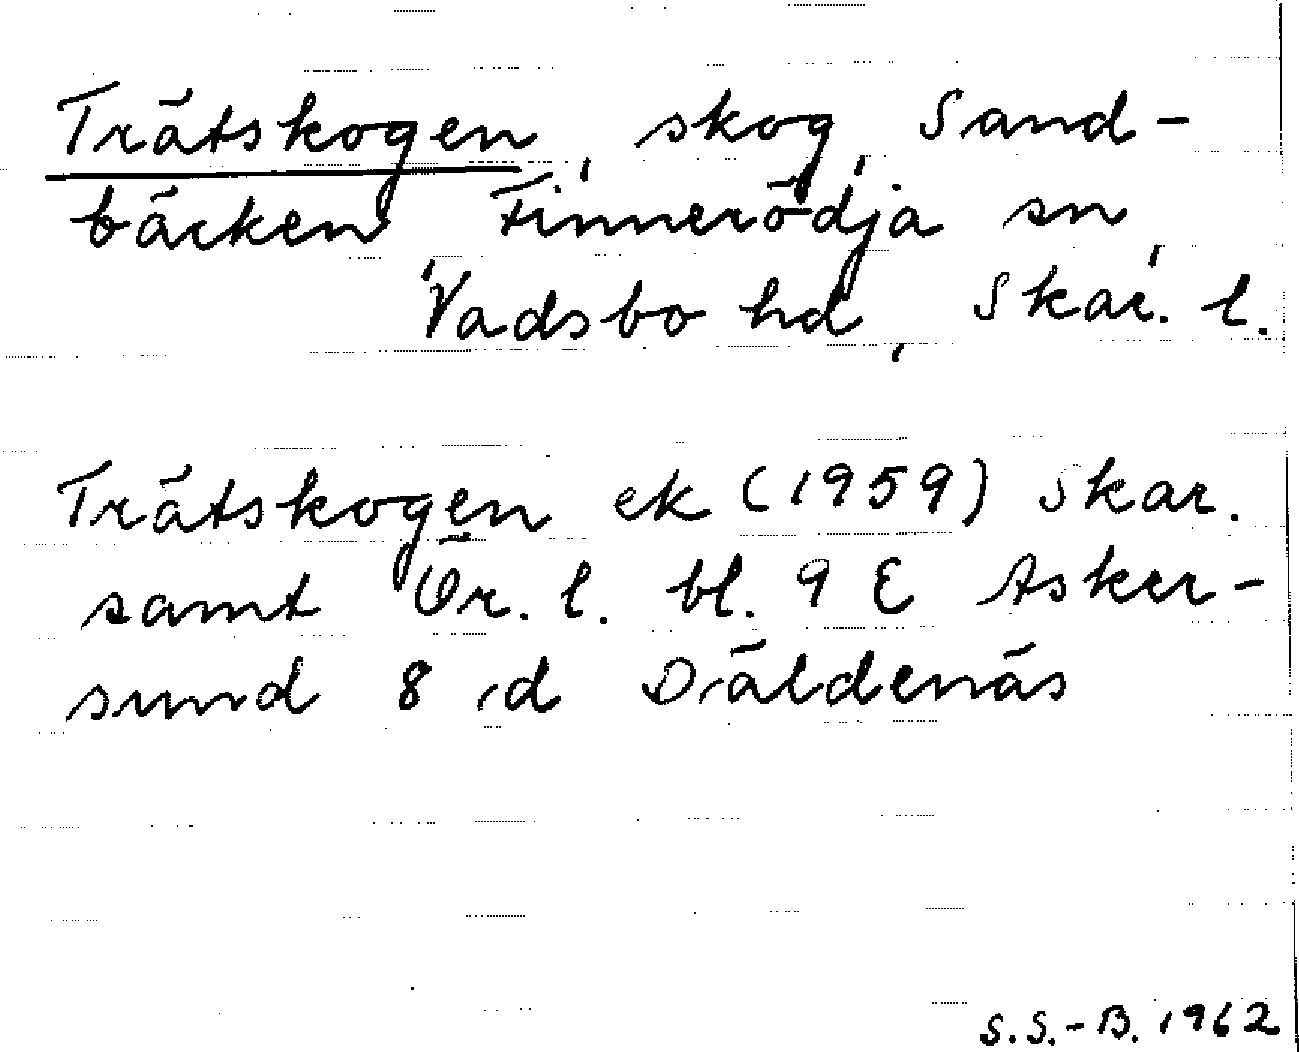 Trätskogen, skog, Sand-
bäcken, Finnerödja sn,
Vadsbo hd, Skar. l.
Trätskogen ek (1959) Skar.
samt Ör. l. bl. 9 E Asker-
sund 8 d Däldenäs
S.S.-B. 1962